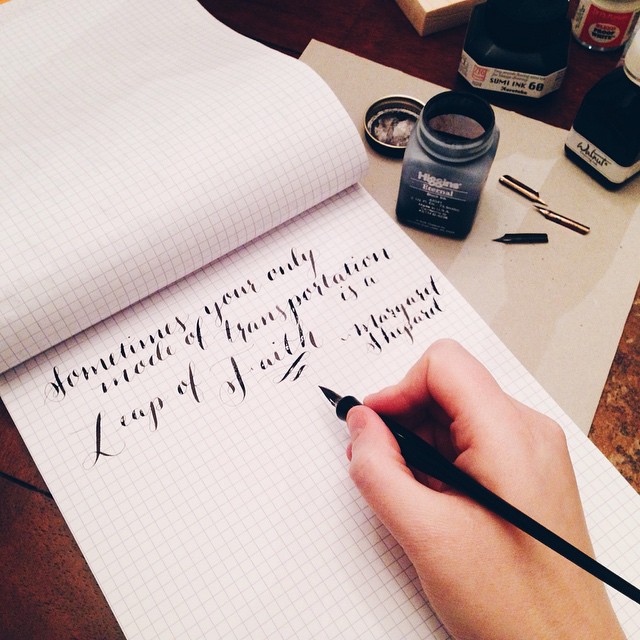 Sometimes your only
mode of transportation
is a
Leap of Faith
-Margaret
Shepard
Higgins
Eternal
SUMI INK 60
Walnut